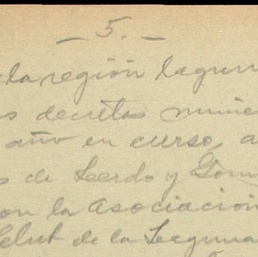 - 5. -
la región lagun
s decretos núme
año en curso, a
s de Lerdo y Góm
on la Asociación
Club de la Laguna